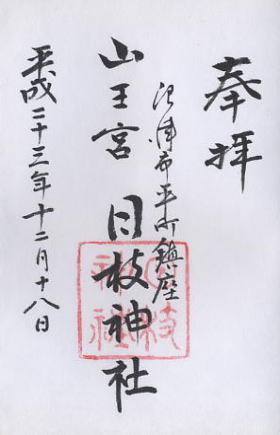 奉拝
沼津市平町鎮座
山王宮 日枝神社
日枝神社
平成二十三年十二月十八日